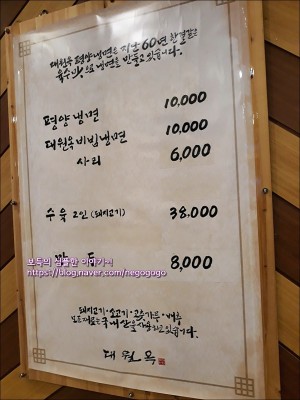 대원옥 평양냉면은 지난 60년 한결같은
육수와 으로 냉면을 만들고 있습니다.
평양냉면 10,000
대원옥비빔냉면 10,000
사리 6,000
수육 2인 (돼지고기) 38.000
보득의 심플한 이야기
https://blog.naver.com/negogogo
만두 8,000
돼지고기·소고기·고춧가루·배추
모든 재료는 국내산을 사용하고 있습니다.
대원옥